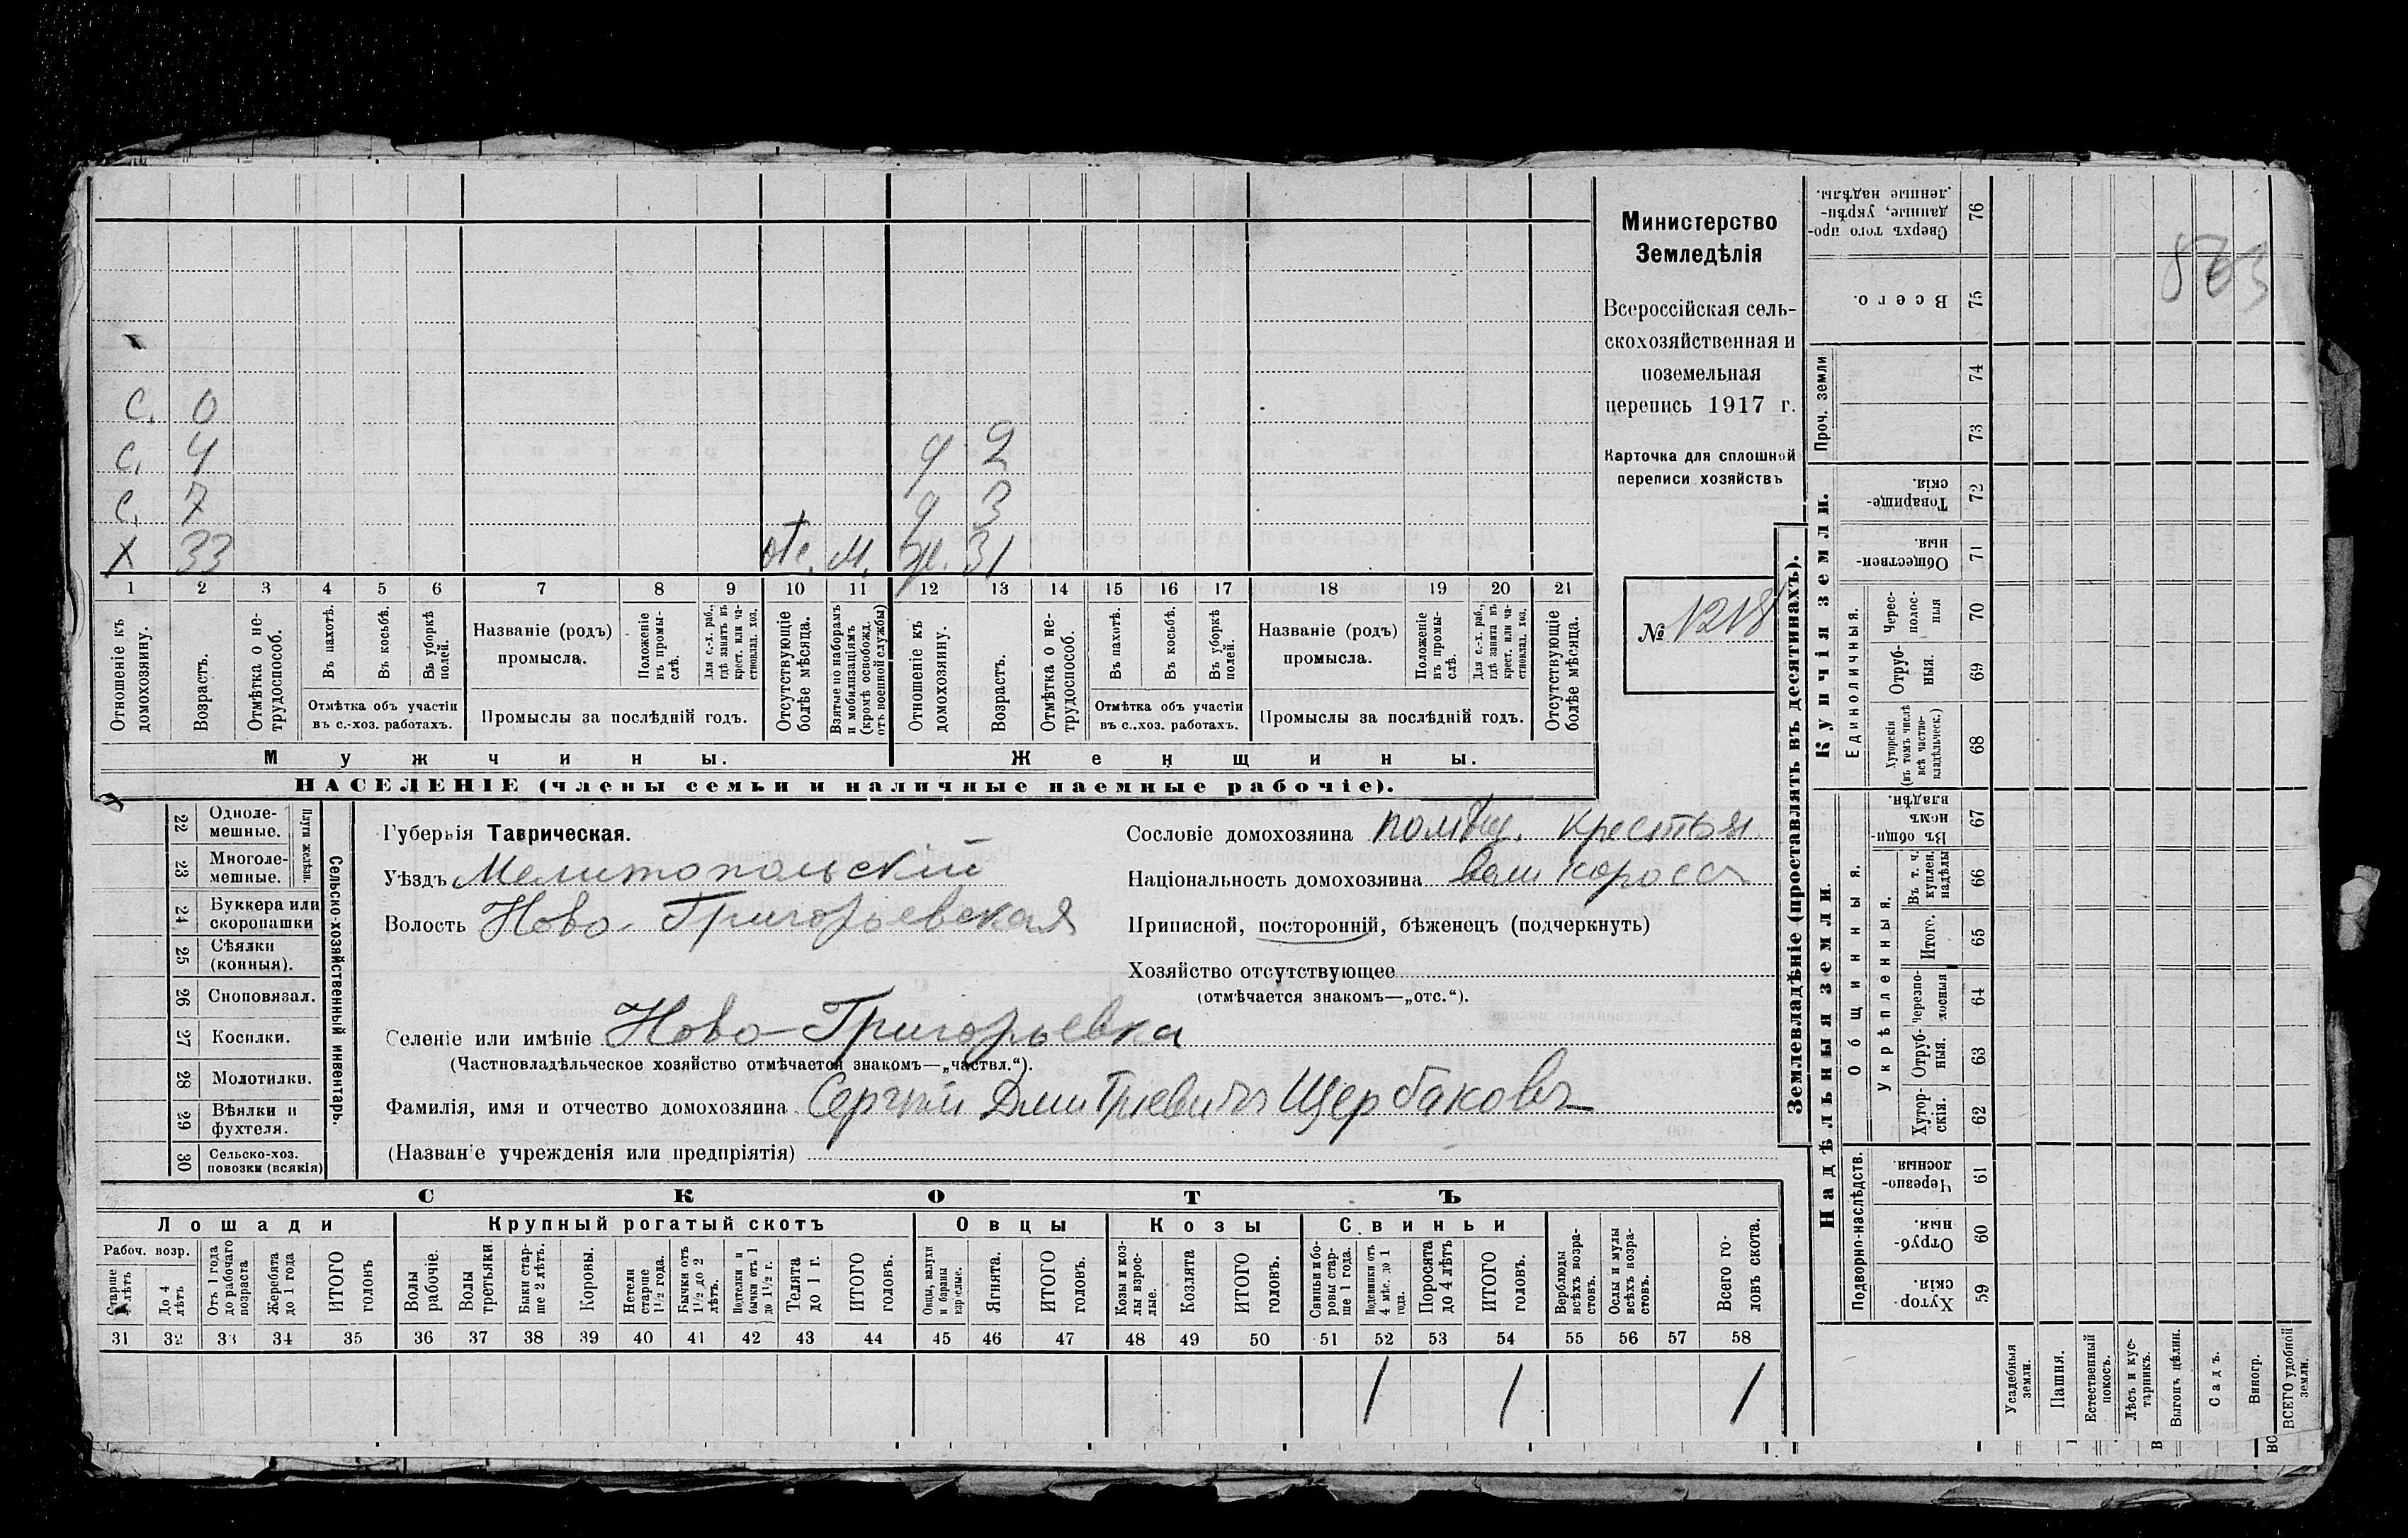 С. 0
С. 4 д 2
С. 7 д 3
Х 33 отс. м. ж. 31
1 2 3 4 5 6 7 8 9 10 11 12 13 14 15 16 17 18 19 20 21
Отношеніе къ домохозяину.
Возрастъ.
Отмѣтка о не-
трудоспособ.
Въ пахотѣ.
Въ косьбѣ.
Въ уборкѣ полей.
Отмѣтка объ участіи
въ с.-хоз. работахъ.
Названіе (родъ)
промысла.
Положеніе въ промы-
слѣ.
Для с.-х. раб.,
гдѣ занятъ въ
крест. или ча-
стновлад. хоз.
Промыслы за послѣдній годъ.
Отсутствующіе
болѣе мѣсяца.
Взятые по наборамъ
и мобилизаціямъ
(кромѣ освобожд.
отъ военной службы)
Отношеніе къ
домохозяину.
Возрастъ.
Отмѣтка о не-
трудоспособ.
Въ пахотѣ.
Въ косьбѣ.
Въ уборкѣ
полей.
Отмѣтка объ участіи
въ с..хоз. работахъ.
Названіе (родъ)
промысла.
Положеніе
въ промы-
слѣ.
Для с.-х. раб.,
гдѣ занята въ
крест. или ча-
стновлад. хоз.
Промыслы за послѣдній годъ.
Отсутствующіе
болѣе мѣсяца.
Мужчины. Женщины.
НАСЕЛЕНІЕ (члены семьи и наличные наемные рабочіе).
Министерство
Земледѣлія
Всероссійская сель-
скохозяйственная и
поземельная
перепись 1917 г.
Карточка для сплошной
переписи хозяйствъ
№ 1218
22 Одноле-
мешные.
23 Многоле-
мешные.
Плуги желѣзн.
24 Буккера или
скоропашки
25 Сѣялки
(конныя).
26 Сноповязал.
27 Косилки.
28 Молотилки.
29 Вѣялки и
фухтеля.
30 Сельско-хоз.
повозки (всякія)
Сельско-хозяйственный инвентарь.
Губернія Таврическая.
Уѣздъ Мелитопольскій
Волость Ново-Григорьевская
Селеніе или имѣніе Ново-Григорьевка
(Частновладѣльческое хозяйство отмѣчается знакомъ—„частвл.“).
Фамилія, имя и отчество домохозяина Сергѣй Дмитріевичъ Щербаковъ
(Названіе учрежденія или предпріятія)
Сословіе домохозяина крестьян
Національность домохозяина великоросс
Приписной, посторонній, бѣженецъ (подчеркнуть)
Хозяйство отсутствующее
(отмѣчается знакомъ—„отс.“).
СКОТЪ
Лошади Крупный рогатый скотъ Овцы Козы Свиньи
Рабоч. возр.
Старше
4 лѣтъ
До 4
лѣтъ
Отъ 1 года
до рабочаго
возраста
Жеребята
до 1 года
ИТОГО
головъ
Волы
рабочіе.
Волы
третьяки.
Быки стар-
ше 2 лѣтъ.
Коровы.
Нетели
старше
1½ года.
Бычки отъ
1½ до 2
лѣтъ.
Подтелки и
бычки отъ 1
до 1½ г.
Телята
до 1 г.
ИТОГО
головъ.
Овцы, валухи
и бараны
взрослые.
Ягнята.
ИТОГО
головъ.
Козы и коз-
лы взрос-
лые.
Козлята
ИТОГО
головъ.
Свиньи и бо-
ровы стар-
ше 1 года.
Подсвинки отъ
4 мѣс. до 1
года.
Поросята
до 4 лѣтъ
ИТОГО
головъ.
Верблюды
всѣхъ возра-
стовъ.
Ослы и мулы
всѣхъ возра-
стовъ.
Всего го-
ловъ скота.
31 32 33 34 35 36 37 38 39 40 41 42 43 44 45 46 47 48 49 50 51 52 53 54 55 56 57 58
1 1 1
Землевладѣніе (проставлять въ десятинахъ).
Надѣльныя земли. Купчія земли.
Подворно-наслѣдств.
Общинныя.
Укрѣпленныя.
Единоличныя.
Проч. земли
Сверхъ того про-
данные, укрѣп-
ленные надѣлы. 76
Всего. 75
74
73
Товарище-
скія. 72
Обществен-
ныя. 71
Черес-
полос-
ныя 70
Отруб-
ныя. 69
Хуторскія
(въ томъ числѣ
всѣ частно-
владѣльческ.) 68
Въ общин-
номъ
владѣн. 67
Въ т. ч.
куплен.
надѣлы 66
Итого. 65
Черезпо-
лосныя 64
Отруб-
ныя. 63
Хутор-
скія. 62
Черезпо-
лосныя. 61
Отруб-
ныя. 60
Хутор-
скія. 59
Усадебныя
земли.
Пашня.
Естественный
покосъ.
Лѣсъ и кус-
тарникъ.
Выгонъ, цѣлин.
Садъ.
Виногр.
ВСЕГО удобной
земли.